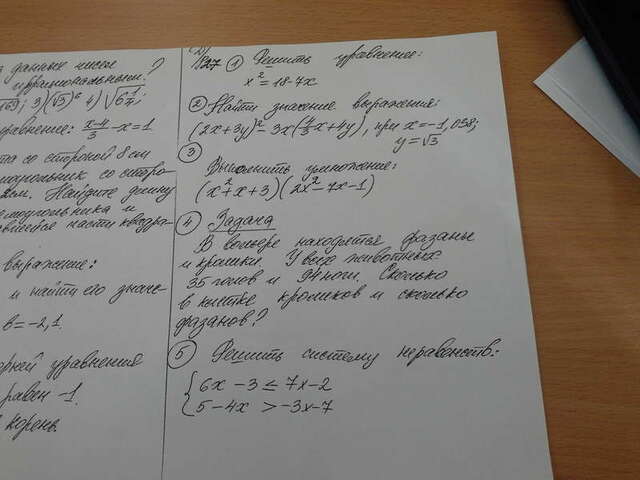 данные числа
иррациональным?
3) (√3)⁶ 4) √6¼;
уравнение: x-4/3 - x = 1
со стороной 8 см
Найдите длину
и
части квадра-
выражение:
и найти его значе-
в = -2,1.
корней уравнения
равен -1.
корень.
№27 ① Решить уравнение:
x² = 18 - 7x
② Найти значение выражения:
(2x+3y)² - 3x(4/3x+4y), при x = -1,038;
y = √3
③ Выполнить умножение:
(x²+x+3)(2x²-7x-1)
④ Задача
В вольере находятся фазаны
и кролики. У всех животных
35 голов и 94 ноги. Сколько
в клетке кроликов и сколько
фазанов?
⑤ Решить систему неравенств:
{6x - 3 ≤ 7x - 2
5 - 4x > -3x - 7